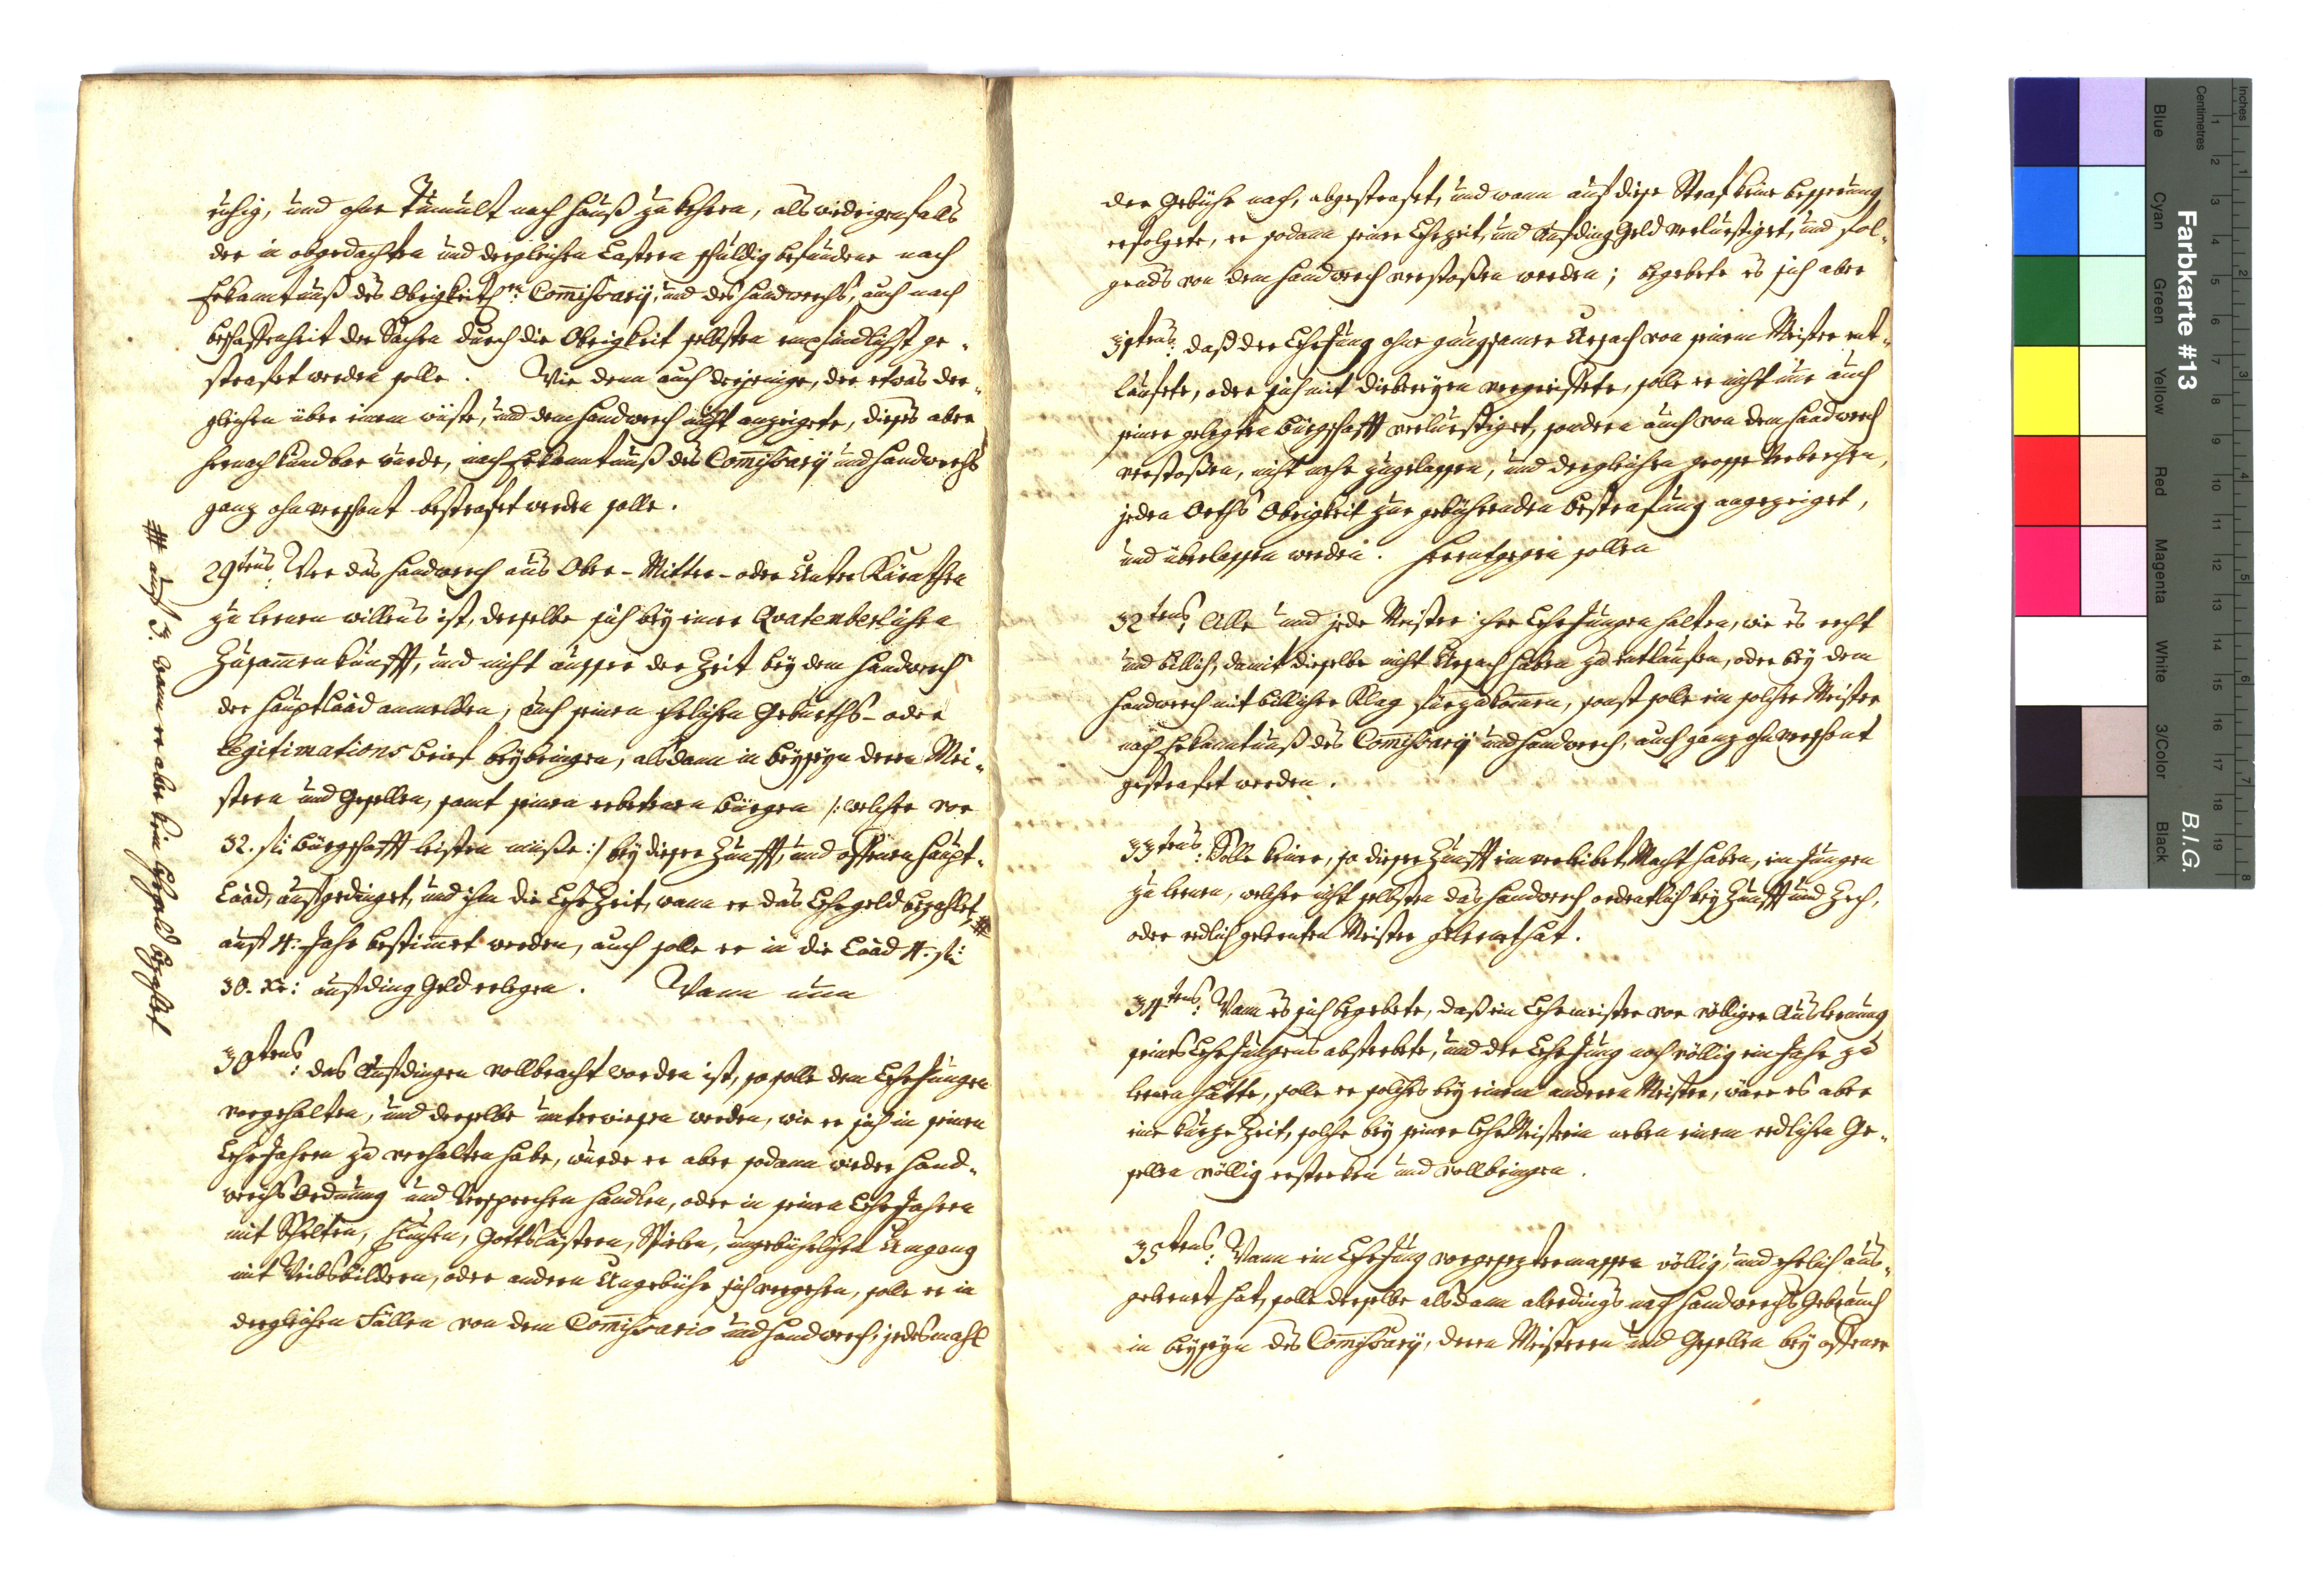 ruhig, und ohne Tumult nach Hauß zu kehren, als widrigenfalls
der in obgedachten und dergleichen Lastern schuldig befundene nach
Erkanntnuß des Obrigkeitl:en Com̄issarÿ, und des Handwerchs, auch nach
beschaffenheit der Sachen durch die Obrigkeit selbsten empfindlichst ge„
strafet werden solle. Wie dann auch derjenige, der etwas der„
gleichen über einen wüste, und dem Handwerch nicht anzeigete, dieses aber
hernach kundbar wurde, nach Erkanntnuß des Com̄issarÿ und Handwerchs
ganz ohnverschont bestrafet werden solle.
29tens: Wer das Handwerch aus Ober- Mitter- oder Unter Kärnthen
zu lernen willens ist, derselbe sich beÿ einer Quatemberlichen
Zusam̄enkunfft, und nicht ausser der Zeit beÿ dem Handwerch
der Haupt Laad anmelden, auch seinen ehelichen Geburths- oder
Legitimations brief beÿbringen, alsdann in beÿseÿn deren Mei„
stern und Gesellen, samt seinen erbettenen bürgen /: welcher vor
32. fl: bürgschafft leisten müße :/ beÿ dieser Zunfft, und offenen Haupt„
Laad, aufgedinget, und ihm die LehrZeit, wann er das Lehrgeld bezahlet, #
auf 4: Jahr bestim̄et werden, auch solle er in die Laad 4: fl:
30. xr: aufding Geld erlegen. Wann nun
# auf 3. wann er aber kein Lehrgeld bezahlet
30tens: das Aufdingen vollbracht worden ist, so solle dem LehrJungen
vorgehalten, und derselbe unterwiesen werden, wie er sich in seinen
LehrJahren zu verhalten habe, wurde er aber sodann wieder Hand„
werchs Ordnung und Versprechen handlen, oder in seinen LehrJahren
mit Schelten, Fluchen, Gottslästern, Spielen, ungebührlichen Umgang
mit Weibsbildern, oder andern Ungebühr sich vergehen, solle er in
dergleichen Fällen von dem Com̄issario und Handwerch, jedesmahl
der Gebühr nach, abgestrafet, und wann auf diese Straf keine besserung
erfolgete, er sodann seiner Lehrzeit, und Aufding Geld verlurstiget, und fol„
gends von dem Handwerch verstoßen werden; begebete es sich aber
31tens: daß der LehrJung ohne gnugsamer Ursach von seinem Meister ent„
lauffete, oder sich mit diebereÿen vergriffete, solle er nicht nur auch
seiner gelegten bürgschafft verlurstiget, sondern auch von dem Handwerch
verstoßen, nicht mehr zugelassen, und dergleichen grosse Verbrechen,
jeden Orths Obrigkeit zur gebührenden bestrafung angezeiget,
und überlassen werden. Herentgegen sollen
32tens: Alle und jede Meister ihre LehrJungen halten, wie es recht
und billich, damit dieselbe nicht Ursach haben zu entlaufen, oder beÿ dem
Handwerch mit billicher Klag fürzukom̄en, sonst solle ein solcher Meister
nach Erkanntnuß des Com̄issarÿ und Handwerch, auch ganz ohnverschont
gestrafet werden.
33tens: Solle keiner, so dieser Zunfft einverleibet, Macht haben, ein Jungen
zu lernen, welcher nicht selbsten das Handwerch ordentlich beÿ Zunfft und Zech,
oder redlich gelernten Meister gelernet hat.
34tens: Wann es sich begebete, daß ein Lehrmeister vor völliger Auslernung
seines LehrJungens absterbete, und der LehrJung noch völlig ein Jahr zu
lernen hätte, solle er solches beÿ einem anderen Meister, wäre es aber
eine kurze Zeit, solche beÿ seiner LehrMeisterin neben einem redlichen Ge„
sellen völlig erstrecken und vollbringen.
35tens: Wann ein LehrJung vorgesezter massen völlig, und ehrlich aus„
gelernet hat, solle derselbe alsdann allerdings nach Handwerchs Gebrauch
in beÿseÿn des Com̄issarÿ, deren Meisteren und Gesellen beÿ offener
Inches
Centimetres
1
2
3
4
5
6
7
8
9
10
11
12
13
14
15
16
17
18
19
1
2
3
4
5
6
7
8
Farbkarte #13
B.I.G.
Blue
Cyan
Green
Yellow
Red
Magenta
White
3/Color
Black